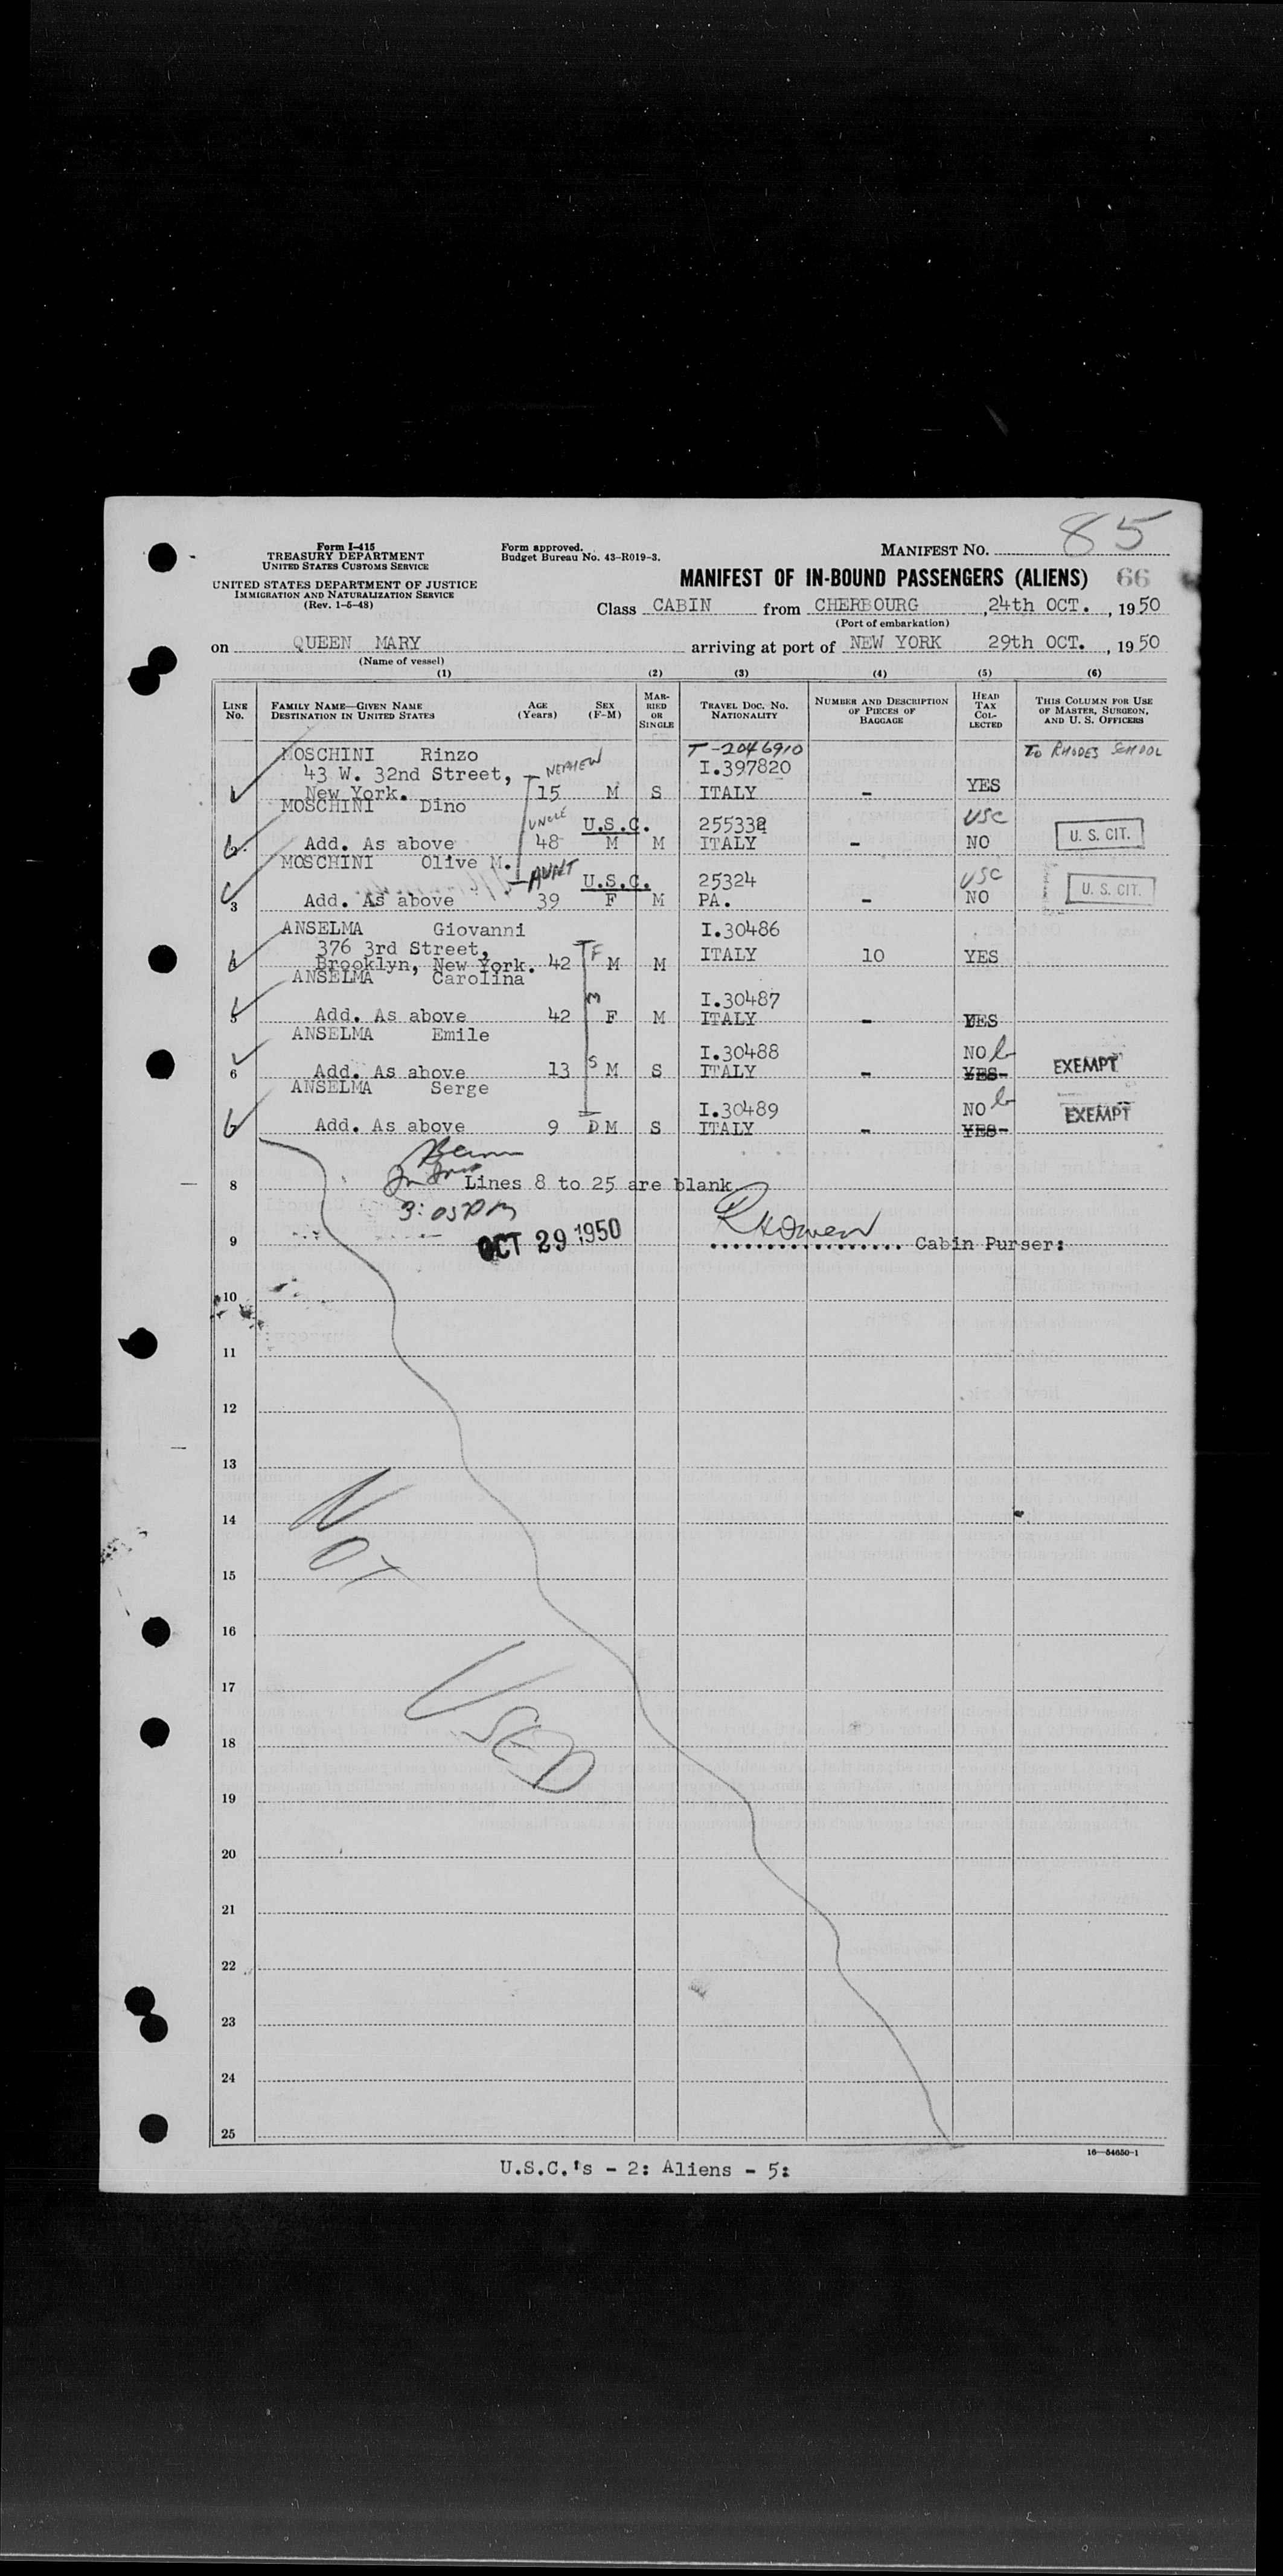 85
Form I-415
TREASURY DEPARTMENT
UNITED STATES CUSTOMS SERVICE
UNITED STATES DEPARTMENT OF JUSTICE
IMMIGRATION AND NATURALIZATION SERVICE
(Rev. 1-5-48)
Form approved.
Budget Bureau No. 43-R019-3.
MANIFEST NO.
MANIFEST OF IN-BOUND PASSENGERS (ALIENS) 66
Class CABIN from CHERBOURG, 24th OCT., 1950
(Port of embarkation)
on QUEEN MARY arriving at port of NEW YORK 29th OCT., 1950
(Name of vessel)
(1) (2) (3) (4) (5) (6)
LINE NO.
FAMILY NAME—GIVEN NAME
DESTINATION IN UNITED STATES
AGE (Years)
SEX (F-M)
MARRIED OR SINGLE
TRAVEL DOC. NO. NATIONALITY
NUMBER AND DESCRIPTION OF PIECES OF BAGGAGE
HEAD TAX COLLECTED
THIS COLUMN FOR USE OF MASTER, SURGEON, AND U. S. OFFICERS
MOSCHINI Rinzo T-2046910 TO RHODES SCHOOL
43 W. 32nd Street, NEPHEW I.397820
New York. 15 M S ITALY - YES
MOSCHINI Dino UNCLE U.S.C. 255332 USC
Add. As above 48 M M ITALY - NO U. S. CIT.
MOSCHINI Olive M. AUNT U.S.C. 25324 USC
3 Add. As above 39 F M PA. - NO U. S. CIT.
ANSELMA Giovanni I.30486
376 3rd Street, F
4 Brooklyn, New York. 42 M M ITALY 10 YES
ANSELMA Carolina M I.30487
5 Add. As above 42 F M ITALY - YES
ANSELMA Emile I.30488 NO
6 Add. As above 13 S M S ITALY - YES EXEMPT
ANSELMA Serge I.30489 NO
Add. As above 9 D M S ITALY - YES EXEMPT
8 Lines 8 to 25 are blank
3:05 PM
9 OCT 29 1950 Cabin Purser:
10
11
12
13
14
15
16
17
18
19
20
21
22
23
24
25
NOT
USED
16—54650-1
U.S.C.'s - 2: Aliens - 5: